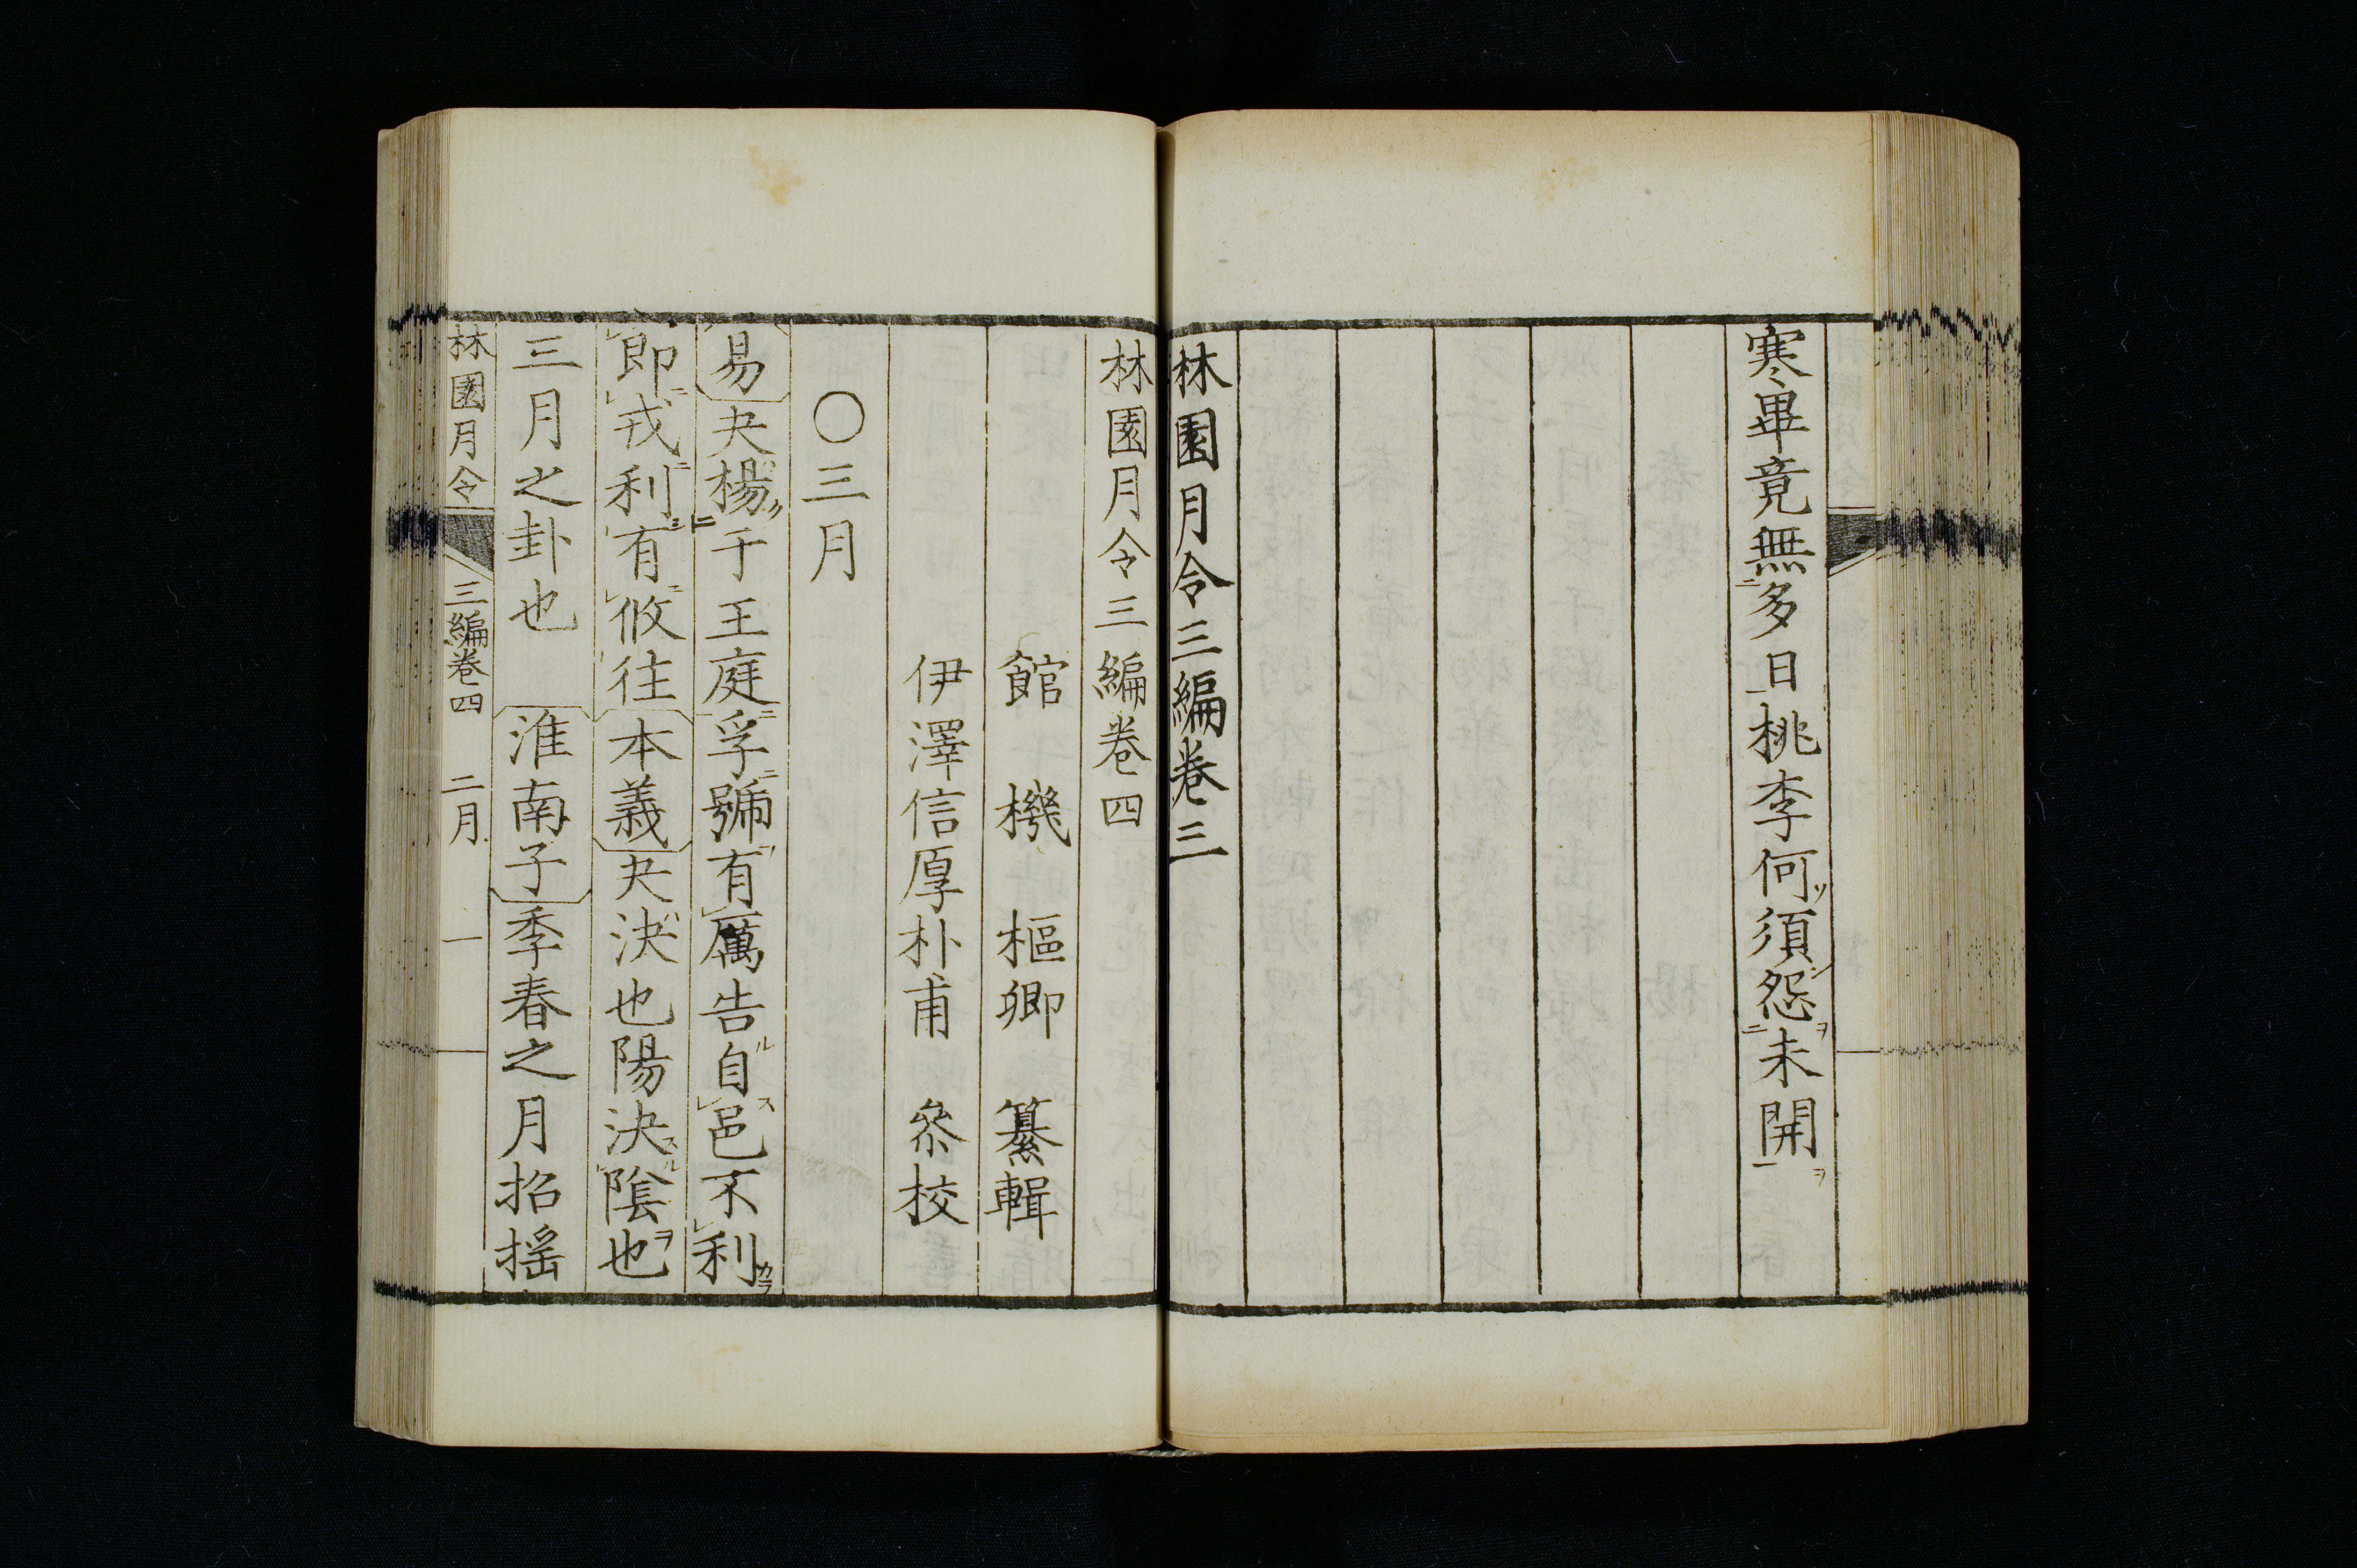 寒畢竟無多日桃李何須怨未開
林園月令三編卷三
林園月令三編卷四
館機樞卿纂輯
伊澤信厚朴甫叅校
〇三月
易夬揚于王庭孚號有厲告自邑不利
即戎利有攸往本義夬決也陽決陰也
三月之卦也淮南子季春之月招揺
林園月令三編卷四二月一